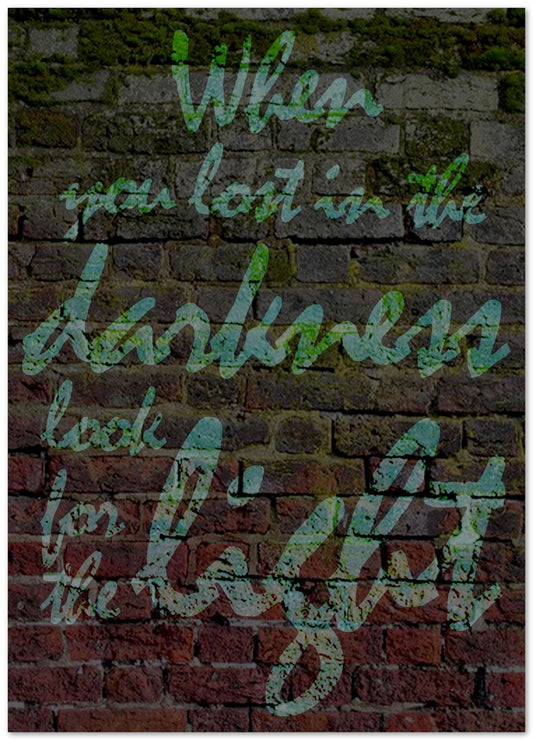 When
you lost in the
darkness
look
for
the
light